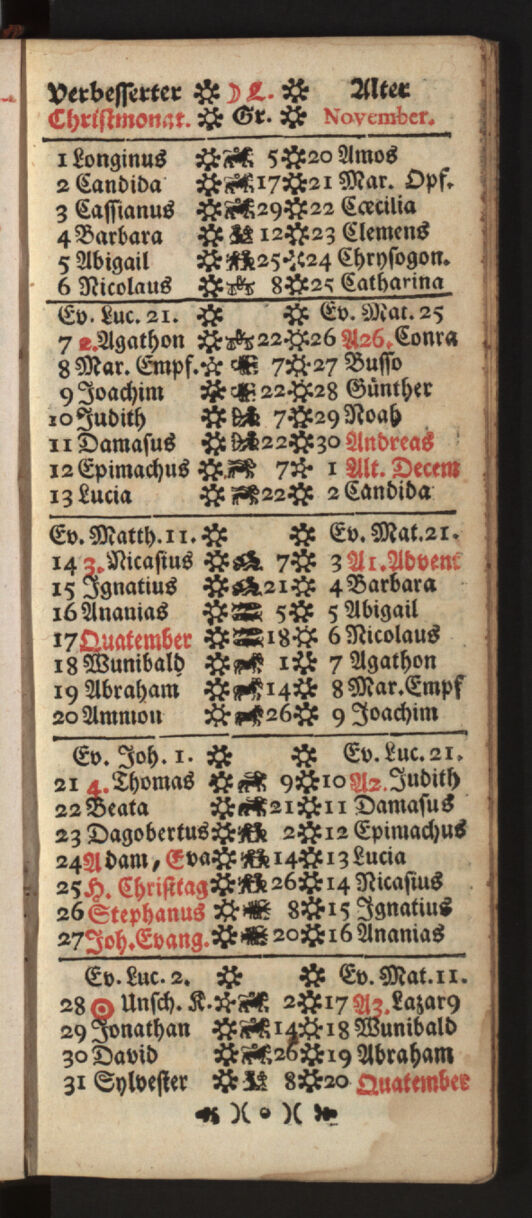 Verbesserter ☽ L. Alter
Christmonat. Gr. November.
1 Longinus 5 20 Amos
2 Candida 17 21 Mar. Opf.
3 Cassianus 29 22 Cœcilia
4 Barbara 12 23 Clemens
5 Abigail 25 24 Chrysogon.
6 Nicolaus 8 25 Catharina
Ev. Luc. 21. Ev. Mat. 25
7 2. Agathon 22 26 A26. Conra
8 Mar. Empf. 7 27 Busso
9 Joachim 22 28 Günther
10 Judith 7 29 Noah
11 Damasus 22 30 Andreas
12 Epimachus 7 1 Alt. Decem
13 Lucia 22 2 Candida
Ev. Matth. 11. Ev. Mat. 21.
14 3. Nicasius 7 3 A1. Advent
15 Ignatius 21 4 Barbara
16 Ananias 5 5 Abigail
17 Quatember 18 6 Nicolaus
18 Wunibald 1 7 Agathon
19 Abraham 14 8 Mar. Empf
20 Ammon 26 9 Joachim
Ev. Joh. 1. Ev. Luc. 21.
21 4. Thomas 9 10 A2. Judith
22 Beata 21 11 Damasus
23 Dagobertus 2 12 Epimachus
24 Adam, Eva 14 13 Lucia
25 H. Christtag 26 14 Nicasius
26 Stephanus 8 15 Ignatius
27 Joh. Evang. 20 16 Ananias
Ev. Luc. 2. Ev. Mat. 11.
28 ☉ Unsch. K. 2 17 A3. Lazar9
29 Jonathan 14 18 Wunibald
30 David 26 19 Abraham
31 Sylvester 8 20 Quatember